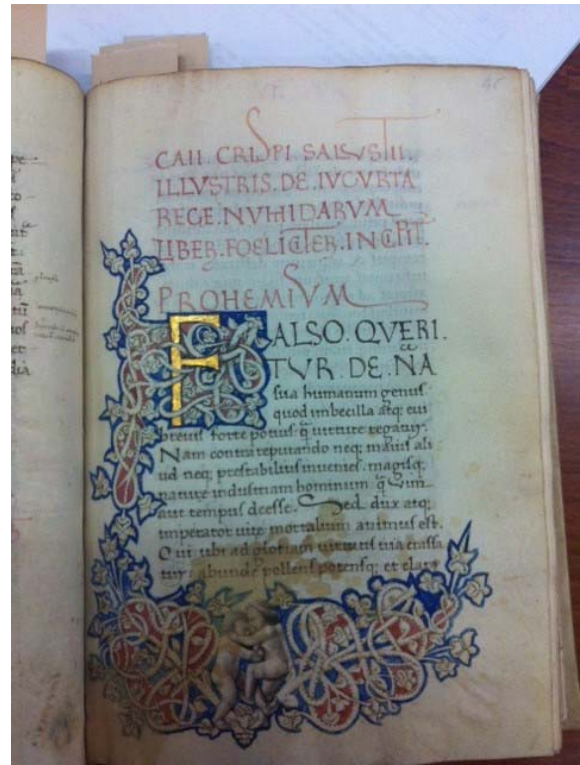 CAII. CRISPI SALSVSTII.
ILLVSTRIS. DE. IVGVRTA
REGE. NVMIDARVM
LIBER. FOELICITER. INCIPIT.
PROHEMIVM
FALSO. QVERI.
TVR. DE. NA
ce
sua humanum genus
quod imbecilla atq; eui
breuis forte potius q̃ uirtute regatur.
Nam contra reputando neq; maius ali
ud neq; prestabilius inuenies. magisq;
nature industriam hominum q̃ uim
aut tempus deesse. Sed dux atq;
imperator uite mortalium animus est.
Qui ubi ad gloriam uirtutis uia grassa
tur: abunde pollens potensq; et clarꝰ